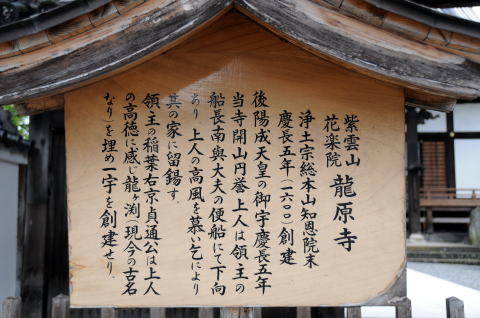 紫雲山 龍原寺
花楽院
浄土宗総本山知恩院末
慶長五年(一六〇〇)創建
後陽成天皇の御宇慶長五年
当寺開山円誉上人は領主の
船長南與大夫の便船にて下向
あり 上人の高風を慕い乞により
其の家に留錫す.
領主の稲葉右京貞通公は上人
の高徳に感じ龍ヶ渕(現今の古名
なり)を埋め一宇を創建せり.